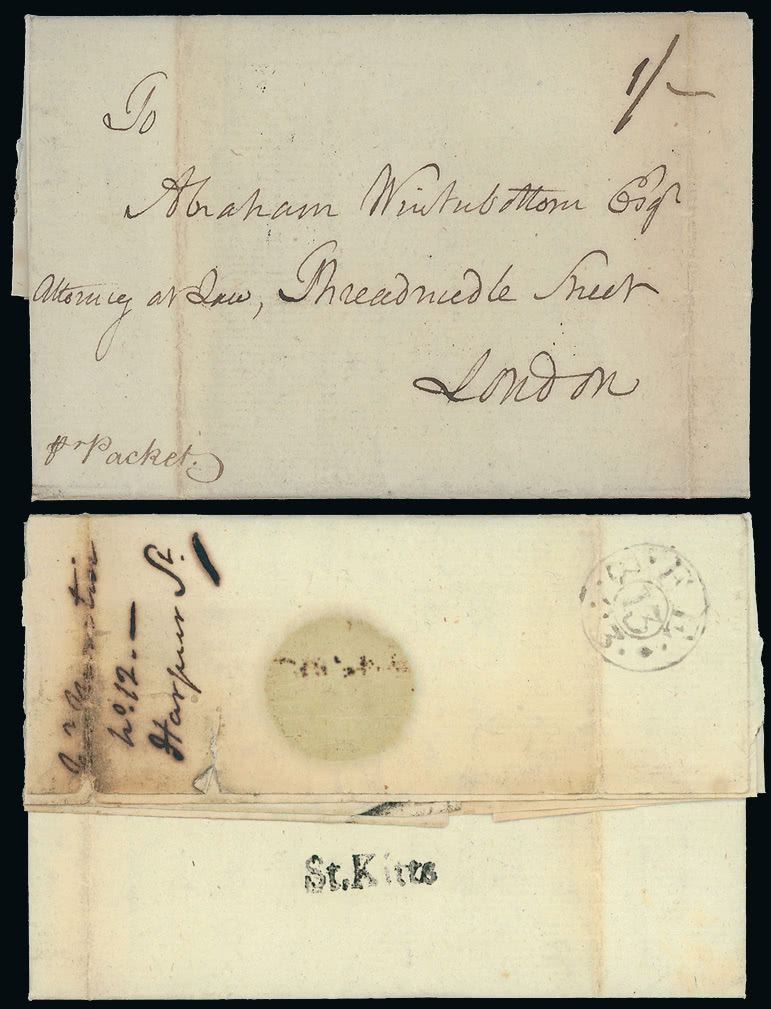 1/-
To
Abraham Winterbottom Esqr
Attorney at Law, Threadneedle Street
London
pr Packet.
No. 12.
Harpur St.
FE
13
St. Kitts